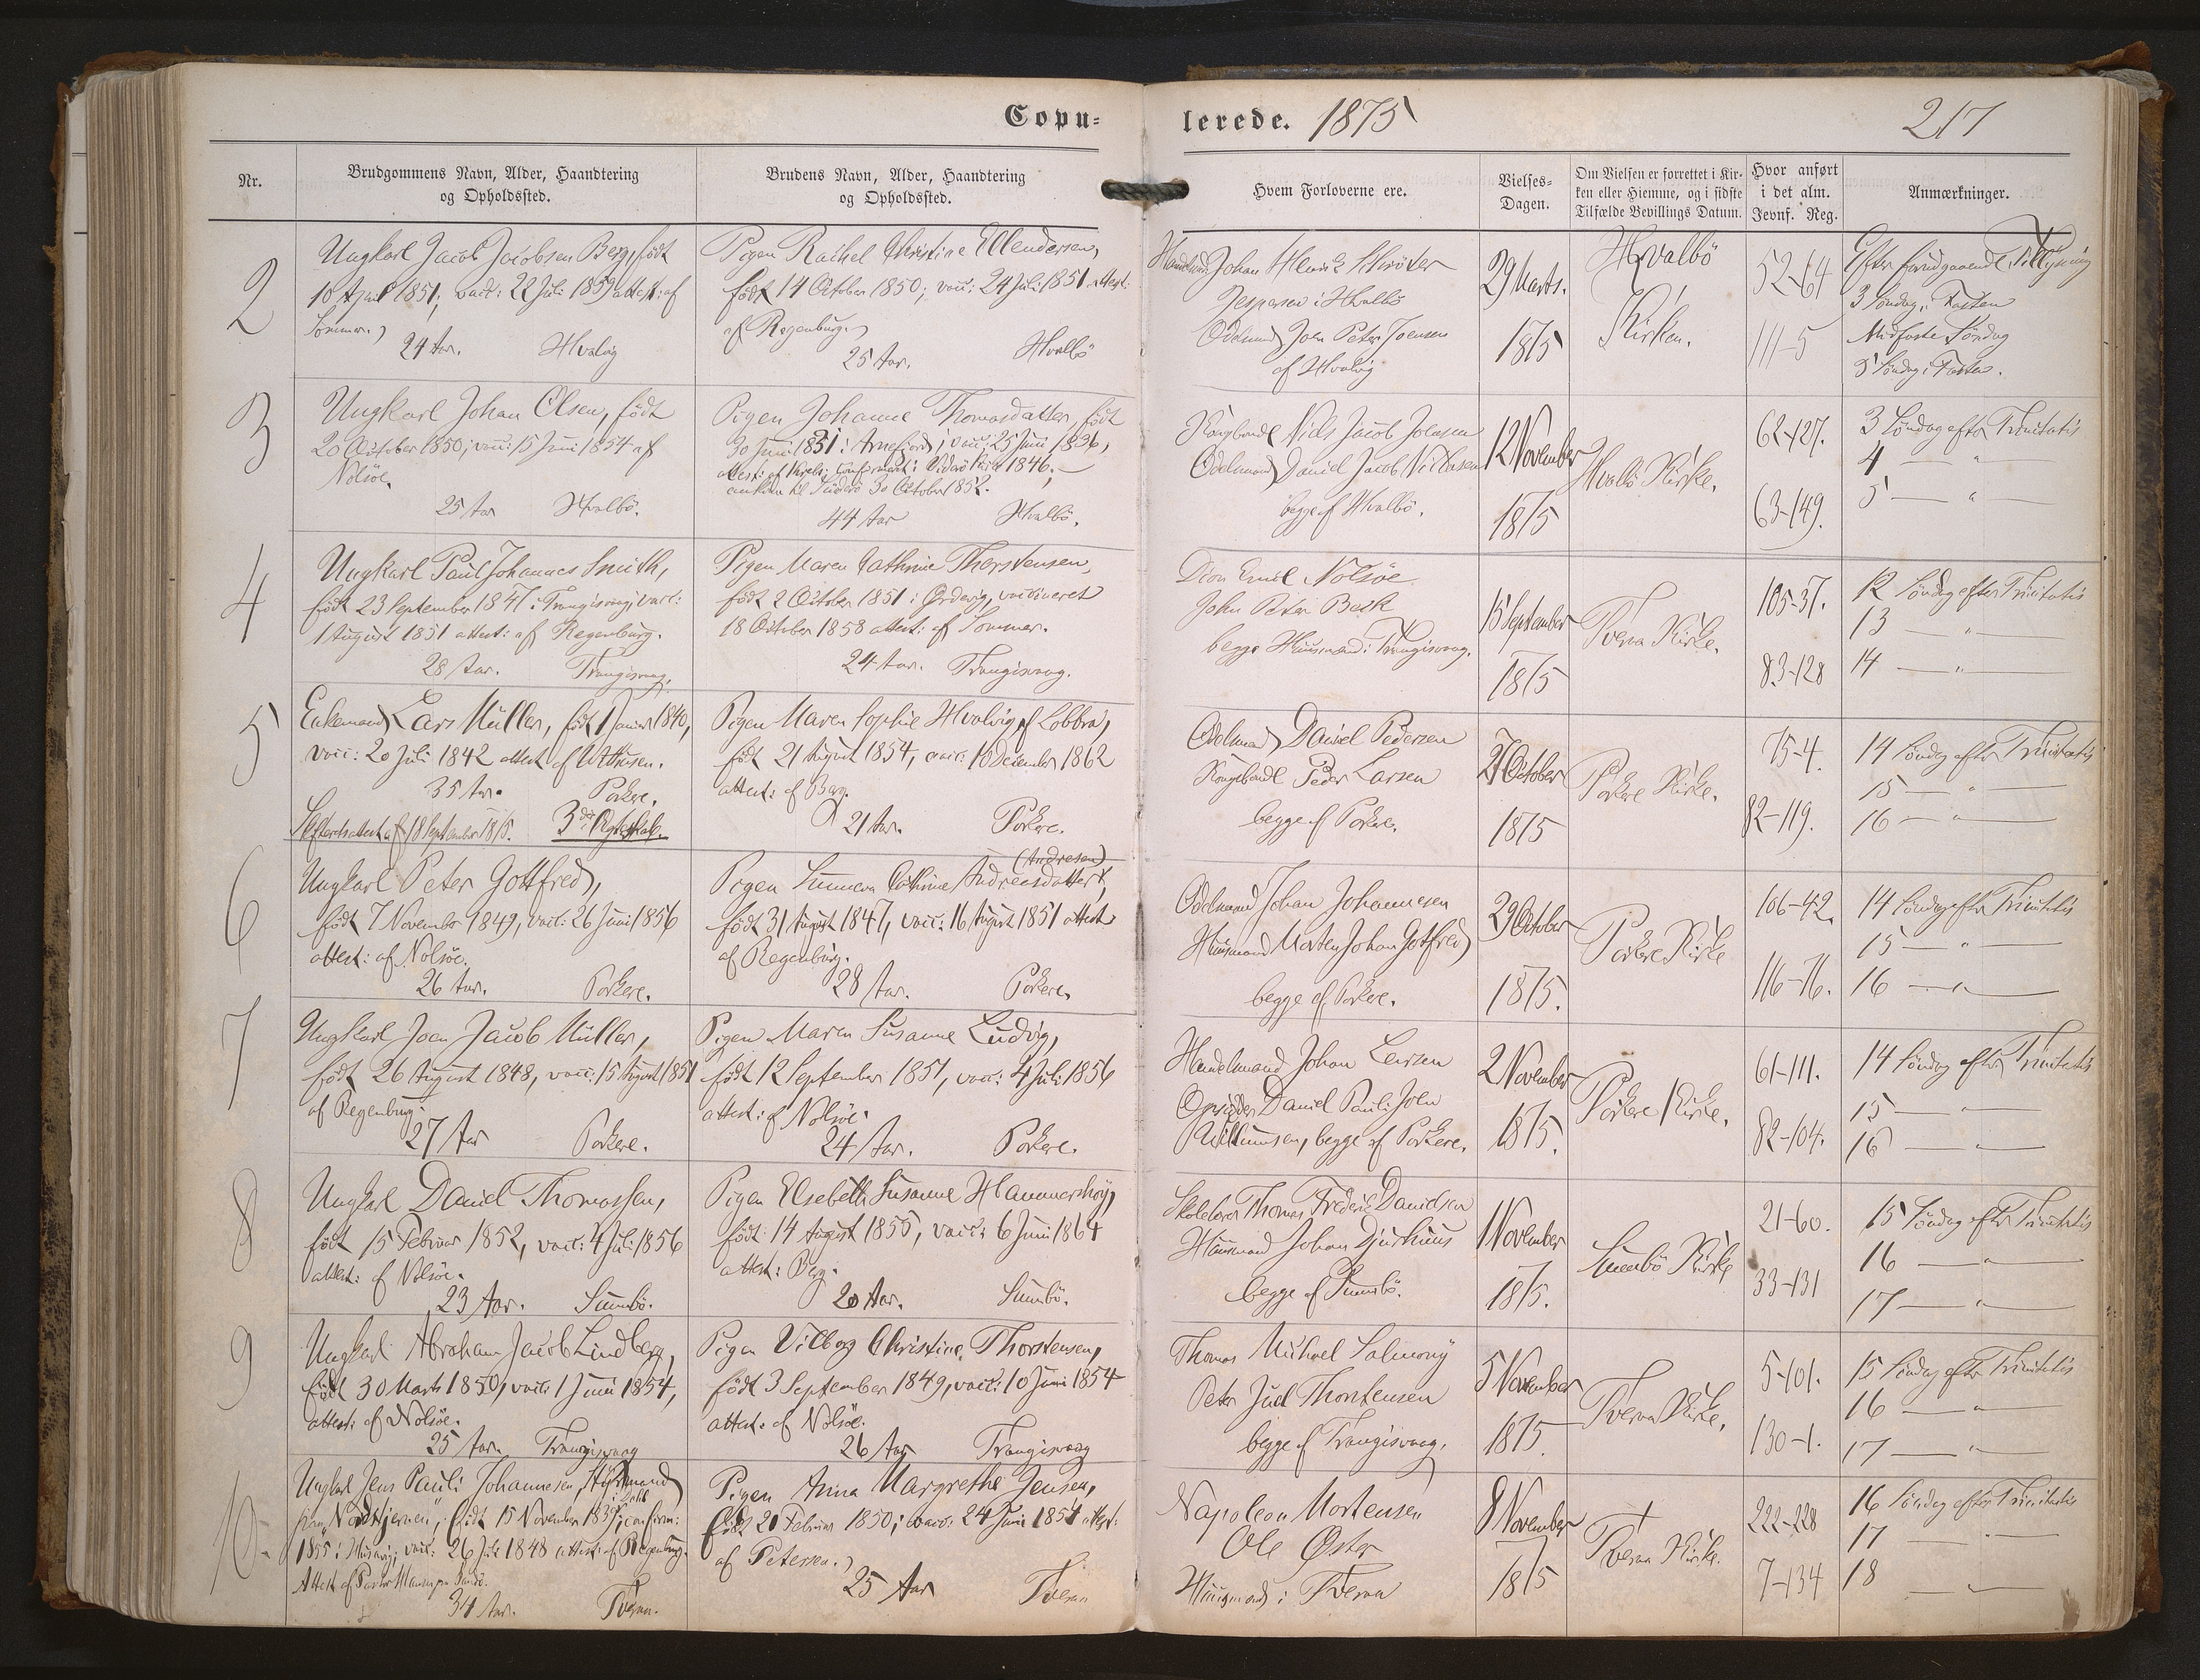 Copu=
lerede. 1875
217
Nr.
Brudgommens Navn, Alder, Haandtering
og Opholdssted.
Brudens Navn, Alder, Haandtering
og Opholdssted.
Hvem Forloverne ere.
Vielses-
Dagen.
Om Vielsen er forrettet i Kir-
ken eller Hjemme, og i sidste
Tilfælde Bevillings Datum.
Hvor anført
i det alm.
Jevnf. Reg.
Anmærkninger.
2
Ungkarl Jacob Jacobsen Berg, født
10 April 1851; vacc: 22 Juli 1859 attest: af
Sommer.
24 Aar. Hvalvig
Pigen Rachel Christine Ellendersen,
født 14 October 1850; vacc: 24 Juli 1851 attest:
af Regenburg.
25 Aar. Hvalbö
Johan Henrik Schröter
Jespersen i Hvalbö
Odelsmand Joen Peter Joensen
af Hvalvig
29 Marts.
1875
Hvalbö
Kirken.
52-64
111-5
Efter forudgaaende Tillysning
3 Söndag i Fasten
Midfaste Söndag
5 Söndag i Fasten.
3
Ungkarl Johan Olsen, født
20 October 1850; vacc: 15 Juni 1854 af
Nolsöe.
25 Aar Hvalbö.
Pigen Johanne Thomasdatter, født
30 Juni 1831 i Arnefjord; vacc: 25 Juni 1836,
attest: af confirmert i Viderö Kirke 1846,
ankom til Suderö 30 October 1852.
44 Aar Hvalbö.
Kongsbonde Niels Jacob Joensen
Odelsmand Daniel Jacob
begge af Hvalbö.
12 November
1875
Hvalbö Kirke.
62-127.
63-149.
3 Söndag efter Trinitatis
4 — " —
5 — " —
4
Ungkarl Paul Johannes Smith,
født 23 September 1847 i Trangisvaag; vacc:
1 August 1851 attest: af Regenburg.
28 Aar. Trangisvaag.
Pigen Maren Cathrine Thorstensen,
født 2 October 1851 i Ördevig, vaccineret
18 October 1858 attest: af Sommer.
24 Aar. Trangisvaag.
Dion Emil Nolsöe
John Peter Beck
begge Huusmænd i Trangisvaag.
15 September
1875
Tveraa Kirke.
105-37.
83-128
12 Söndag efter Trinitatis
13 — " —
14 — " —
5
Enkemand Lars Müller, født 1 Januar 1840,
vacc: 20 Juli 1842 attest af
35 Aar. Porkere.
Skifteretsattest af 18 September 1875. 3die Ægteskab.
Pigen Maren Sophie Hvalvig af Lobbra,
født 21 August 1854, vacc: 10 December 1862
attest: af Berg.
21 Aar. Porkere.
Odelsmand Daniel Pedersen
Kongsbonde Peder Larsen
begge af Porkere.
27 October
1875
Porkere Kirke.
75-4.
82-119.
14 Söndag efter Trinitatis
15 — " —
16 — " —
6
Ungkarl Peter Gottfred,
født 7 November 1849, vacc: 26 Juni 1856
attest: af Nolsöe.
26 Aar. Porkere.
(Andresen)
Pigen Sunneva Cathrine Andreasdatter,
født 31 August 1847, vacc: 16 August 1851 attest
af Regenburg.
28 Aar. Porkere.
Odelsmand Johan Johannesen
Huusmand Morten Johan Gotfred
begge af Porkere.
29 October
1875.
Porkere Kirke
106-42.
116-76.
14 Söndag efter Trinitatis
15 — " —
16 — " —
7
Ungkarl Joen Jacob Müller,
født 26 August 1848, vacc: 15 August 1851
af Regenburg.
27 Aar Porkere.
Pigen Maren Susanne Ludvig,
født 12 September 1851, vacc: 4 Juli 1856
attest: af Nolsöe.
24 Aar. Porkere.
Handelsmand Johan Larsen
Opsidder Daniel Pauli Joen
Willumsen, begge af Porkere.
2 November
1875.
Porkere Kirke.
61-111.
82-104.
14 Söndag efter Trinitatis
15 — " —
16 — " —
8
Ungkarl Daniel Thomassen,
født 15 Februar 1852, vacc: 4 Juli 1856
attest: af Nolsöe.
23 Aar. Sumbö.
Pigen Elsebeth Susanne Hammershöy,
født 14 August 1855, vacc: 6 Juni 1864
attest: Berg.
20 Aar. Sumbö.
Skolelærer Thomas Frederik Davidsen
Huusmand Johan Djurhuus
begge af Sumbö.
1 November
1875.
Sumbö Kirke
21-60.
33-131
15 Söndag efter Trinitatis
16 — " —
17 — " —
9
Ungkarl Abraham Jacob Lindberg,
født 30 Marts 1850, vacc: 1 Juni 1854,
attest: af Nolsöe.
25 Aar. Trangisvaag
Pigen Vilborg Christine Thorstensen,
født 3 September 1849, vacc: 10 Juni 1854
attest: af Nolsöe.
26 Aar Trangisvaag
Thomas Michael Salmony
Peter Juel Thorstensen
begge af Trangisvaag.
5 November
1875
Tveraa Kirke.
5-101.
130-1.
15 Söndag efter Trinitatis
16 — " —
17 — " —
10
Ungkarl Jens Pauli Johannesen, Styrmand
"Nordstjernen", født 15 November confirm:
1855 i Husavig; vacc: 26 Juli 1848 attest: af Regenburg.
Attest af Pastor
34 Aar. Tveraa.
Pigen Anna Margrethe Jensen,
født 20 Februar 1850; vacc: 24 Juni 1854 attest:
af Petersen.
25 Aar Tveraa
Napoleon Mortensen
Ole Öster
Huusmænd i Tveraa
8 November
1875
Tveraa Kirke.
222-228
7-134
16 Söndag efter Trinitatis
17 — " —
18 — " —